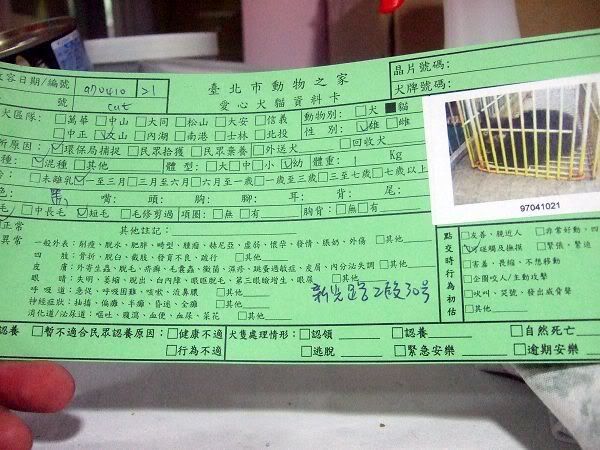 收容日期/編號 970410 >1 臺北市動物之家 晶片號碼：
號 cut 愛心犬貓資料卡 犬牌號碼：
犬區隊：□萬華□中山□大同□松山□大安□信義 動物別：□犬■貓
□中正☑文山□內湖□南港□士林□北投 性別：☑雄□雌
所原因：☑環保局捕捉□民眾拾獲□民眾棄養□外送犬 □回收犬
種：☑混種□其他 體型：□大□中□小☑幼 體重：1 Kg
□未離乳☑一至三月□三月至六月□六月至一歲□一歲至三歲□三至七歲□七歲以上
色：黑 嘴： 頭： 胸： 腳： 耳： 背： 尾：
毛□中長毛☑短毛□毛修剪過 項圈：□無□有 胸背：□無□有
97041021
正常 其他註記：
異常 一般外表：削瘦、脫水、肥胖、畸型、腫瘤、赫尼亞、虛弱、懷孕、發情、脹奶、外傷 □其他
四肢：骨折、脫臼、截肢、發育不良、跛行 □其他
皮膚：外寄生蟲、脫毛、疥癬、毛囊蟲、黴菌、濕疹、跳蚤過敏症、皮屑、內分泌失調 □其他
眼睛：失明、萎縮、脫出、白內障、眼瞼脫毛、第三眼瞼增生、眼屎 □其他
呼吸道：急促、呼吸困難、咳嗽、流鼻膿 □其他
神經症狀：抽搐、偏癱、半癱、昏迷、全癱 □其他
消化道/泌尿道：嘔吐、腹瀉、血便、血尿、菜花 □其他
新光路2段30號
點交時行為初估
□友善、親近人 □非常好動、四
☑可碰觸及撫摸 □緊張、緊迫
□害羞、畏縮、不想移動
□企圖咬人/主動攻擊
□吠叫、哭號、發出威脅聲
□其他
認養 □暫不適合民眾認養原因：□健康不適 犬隻處理情形：□認領 □認養 □自然死亡
□行為不適 □逃脫 □緊急安樂 □逾期安樂